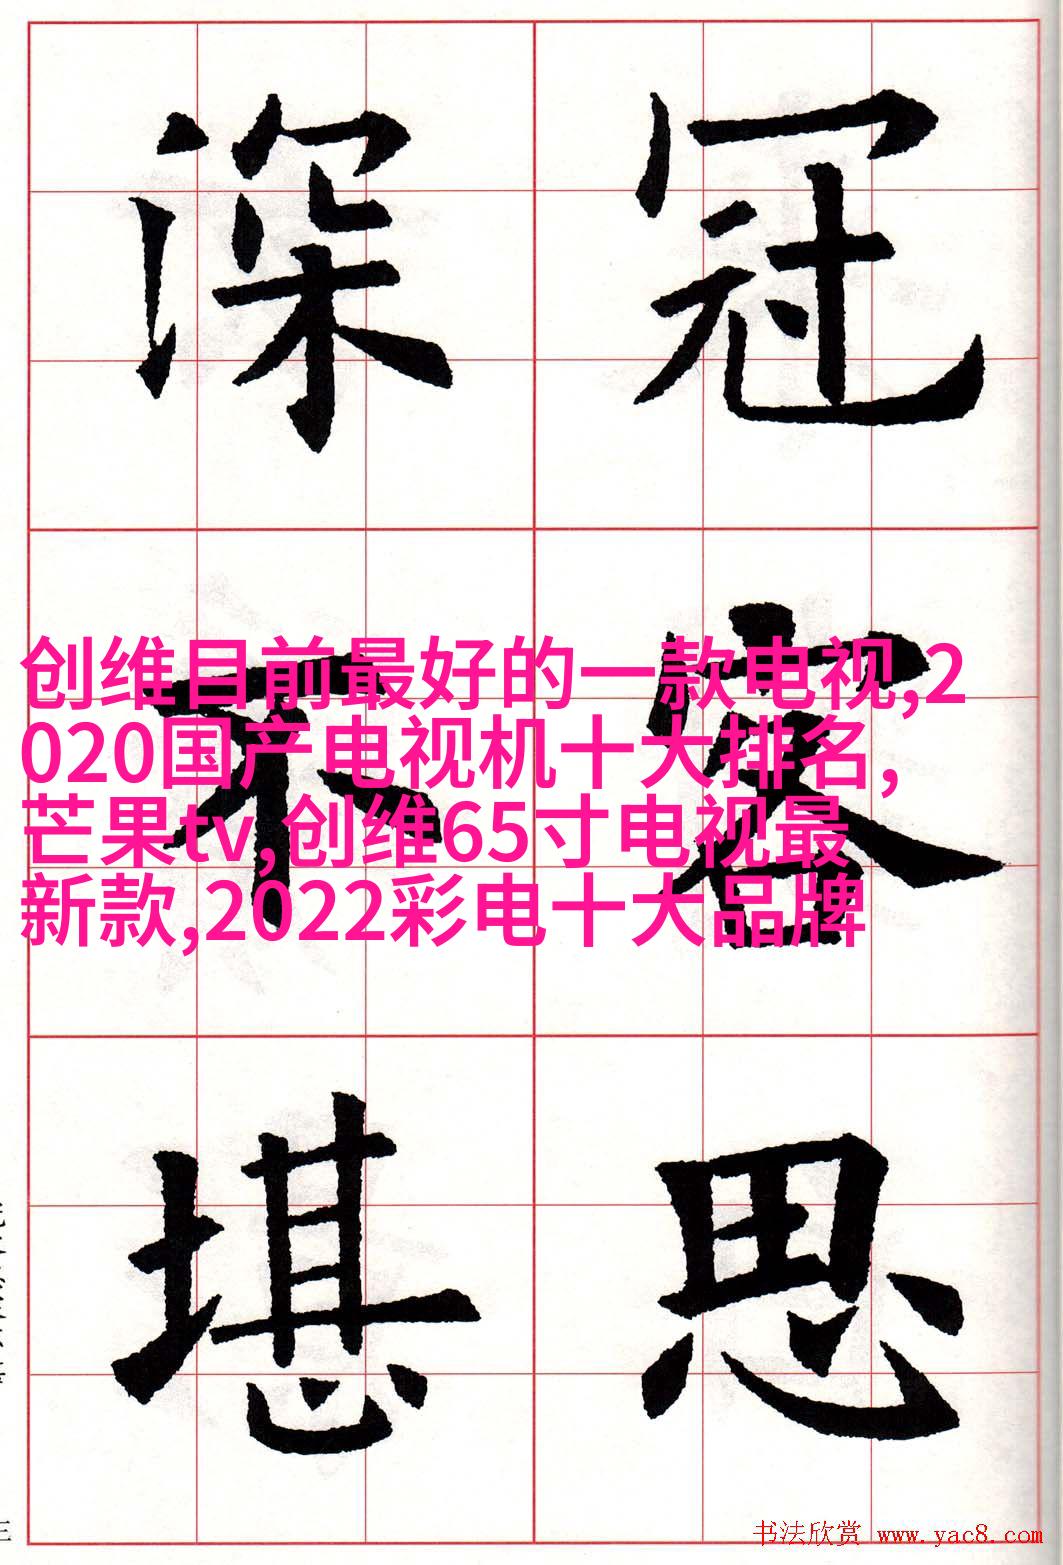 深冠
不容
堪思
创维目前最好的一款电视,2
020国产电视机十大排名,
芒果tv,创维65寸电视最
新款,2022彩电十大品牌
书法欣赏 www.yac8.com